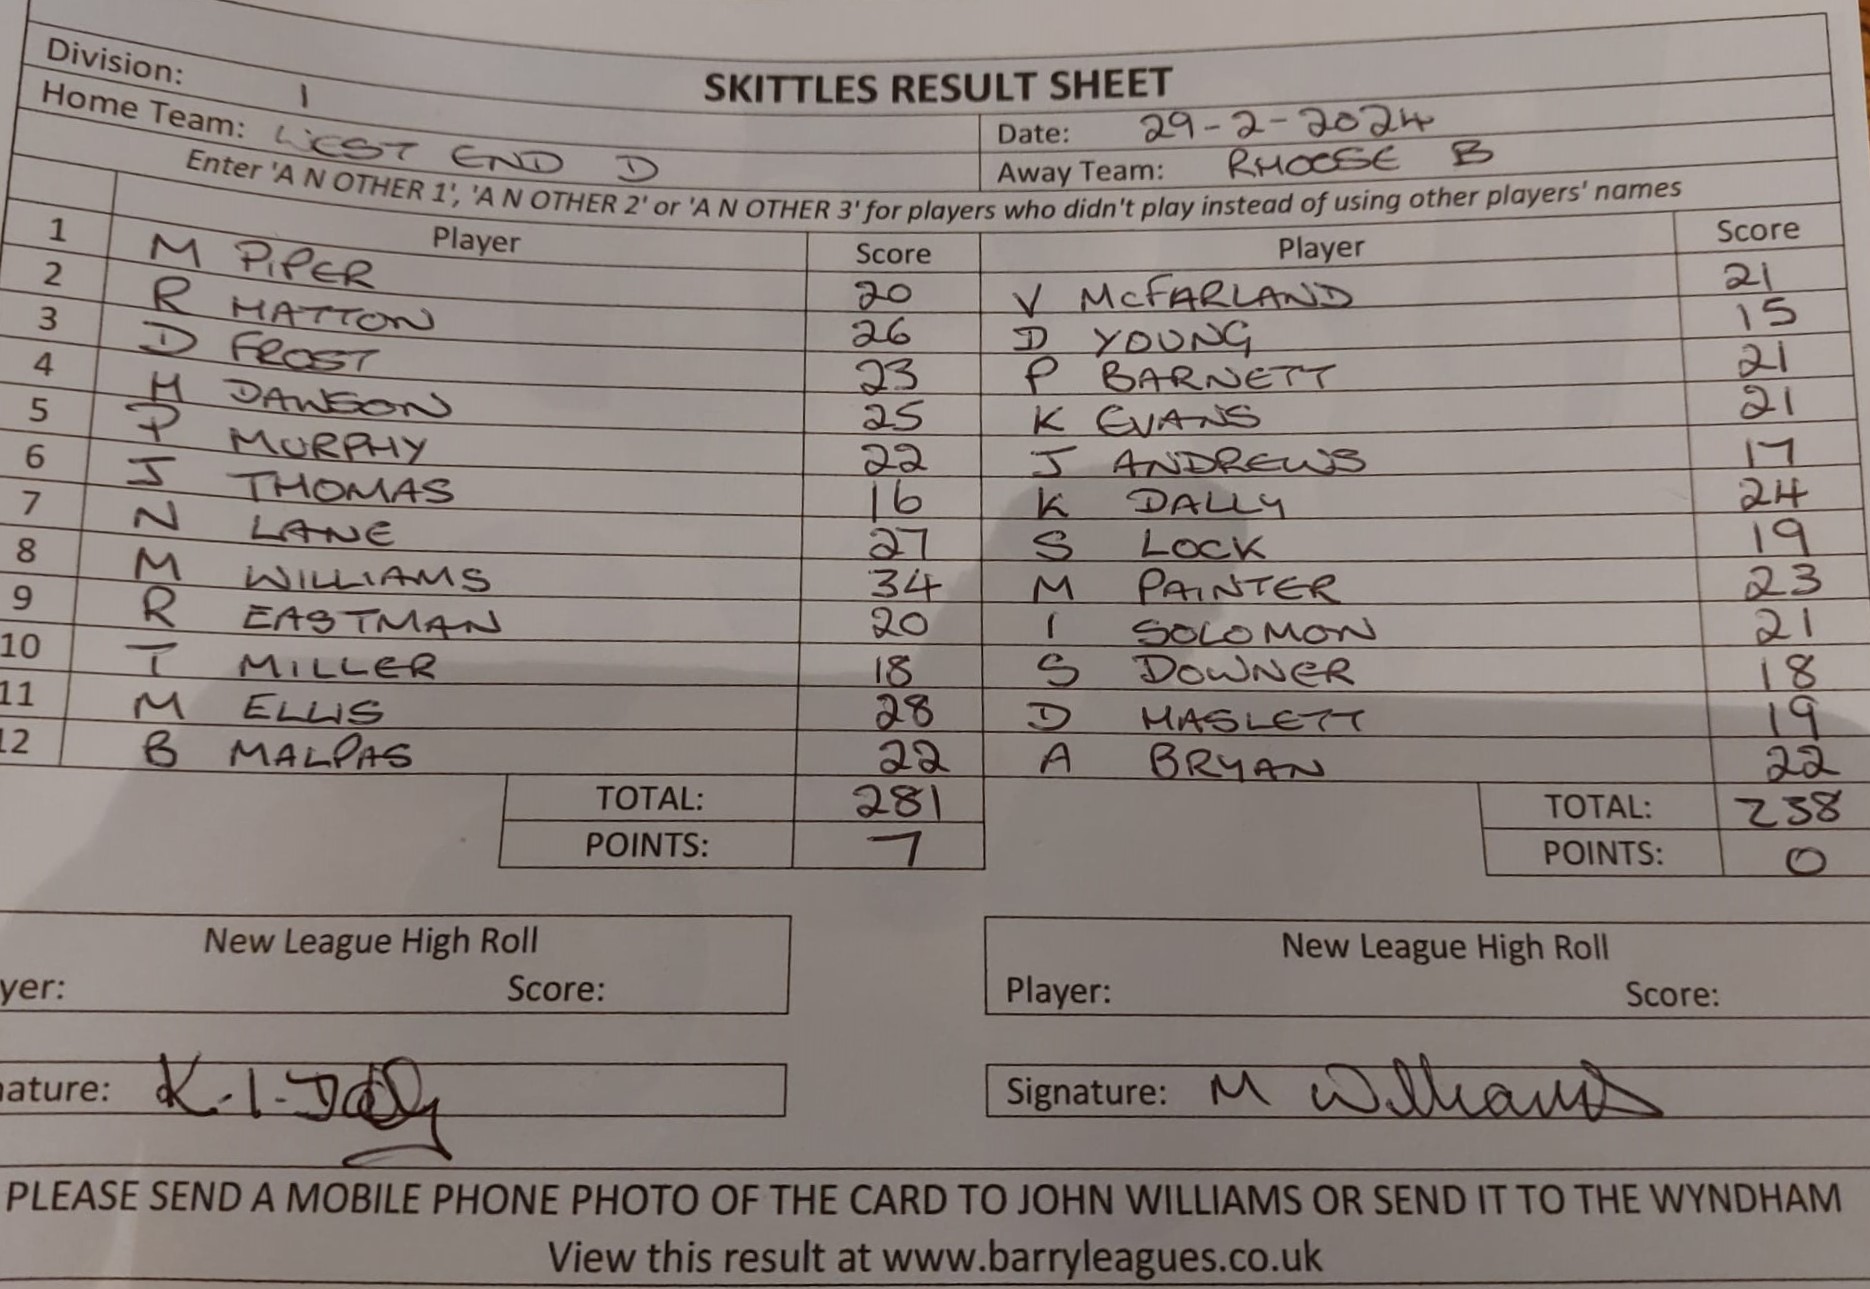 SKITTLES RESULT SHEET
Division: 1
Home Team: WEST END D Date: 29-2-2024
Away Team: RHOOSE B
Enter 'A N OTHER 1', 'A N OTHER 2' or 'A N OTHER 3' for players who didn't play instead of using other players' names
Player Score Player Score
1 M PIPER 20 V McFARLAND 21
2 R HATTON 26 D YOUNG 15
3 D FROST 23 P BARNETT 21
4 H DAWSON 25 K EVANS 21
5 P MURPHY 22 J ANDREWS 17
6 J THOMAS 16 K DALLY 24
7 N LANE 27 S LOCK 19
8 M WILLIAMS 34 M PAINTER 23
9 R EASTMAN 20 I SOLOMON 21
10 T MILLER 18 S DOWNER 18
11 M ELLIS 28 D HASLETT 19
12 B MALPAS 22 A BRYAN 22
TOTAL: 281 TOTAL: 238
POINTS: 7 POINTS: 0
New League High Roll New League High Roll
yer: Score: Player: Score:
nature: K.I. Dally Signature: M Williams
PLEASE SEND A MOBILE PHONE PHOTO OF THE CARD TO JOHN WILLIAMS OR SEND IT TO THE WYNDHAM
View this result at www.barryleagues.co.uk